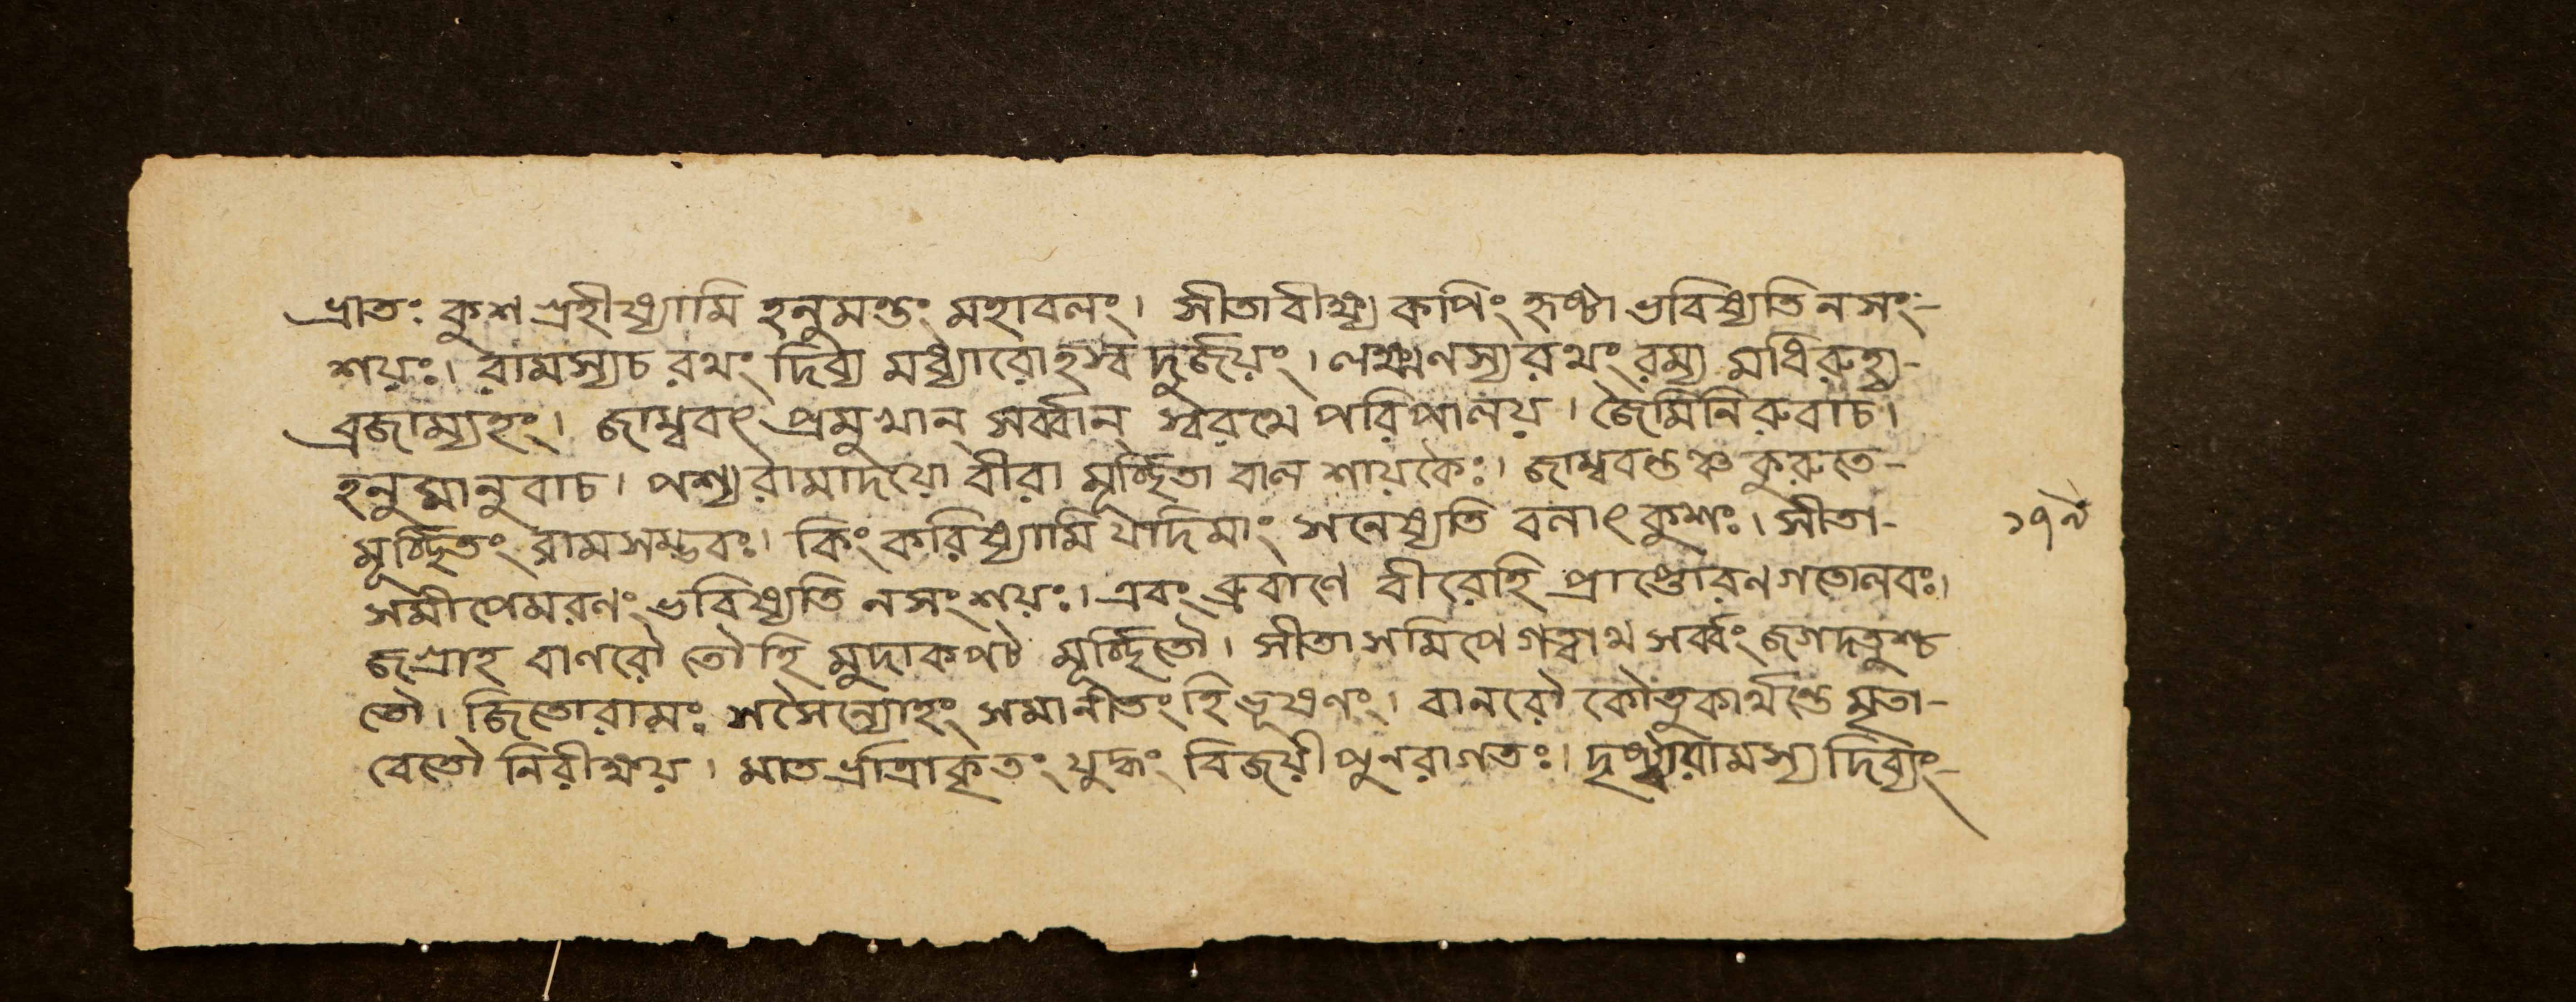 ভ্রাতঃ কুশ গ্রহীষ্যামি হনুমন্তং মহাবলং। সীতাবীক্ষ্য কপিং হৃষ্টা ভবিষ্যতি নসং-
শয়ঃ। রামস্যচ রথং দিব্য মধ্যারোহস্ব দুর্জয়ং। লক্ষ্মণস্য রথং রম্য মধিরুহ্য-
ব্রজাম্যহং। জাম্ববৎ প্রমুখান্ সর্ব্বান্ স্বরথে পরিপালয়। জৈমিনি রুবাচ।
হনুমানুবাচ। পশ্য রামাদয়ো বীরা মূর্চ্ছিতা বাল শায়কৈঃ। জাম্ববন্তঞ্চ কুরুতে-
মূর্চ্ছিতং রামসম্ভবঃ। কিং করিষ্যামি যদিমাং সনেষ্যতি বলাৎ কুশঃ। সীতা-
সমীপেমরণং ভবিষ্যতি নসংশয়ঃ। এবং ব্রুবাণে বীরেহি প্রাপ্তোরণগতোলবঃ।
জগ্রাহ বাণরৌ তৌ হি মুদাকপট মূর্চ্ছিতৌ। সীতা সমিপে গত্বাথ সর্ব্বং জগদতুশ্চ
তৌ। জিতোরামঃ সসৈন্যোহং সমানীতং হি ভূষণং। বানরৌ কৌতুকার্থন্তে মৃতা-
বেতৌ নিরীক্ষয়। মাত র্ভ্রাত্রাকৃতং যুদ্ধং বিজয়ী পুনরাগতঃ। দৃষ্ট্বারামস্য দিব্যং-
১৭৯